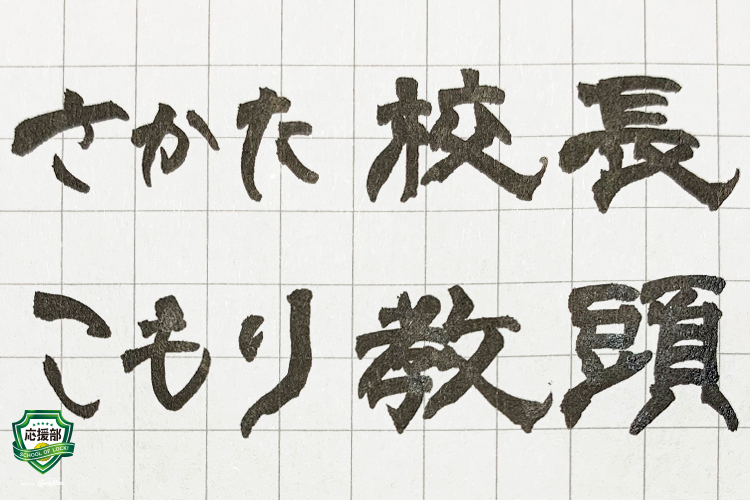 さかた校長
こもり教頭
応援部
SCHOOL OF LOCK!